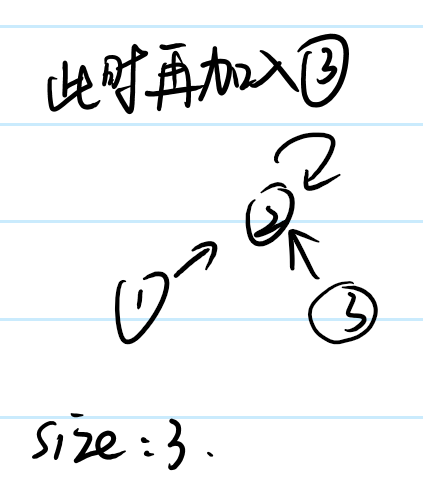 此时再加入③
②
① ③
size:3.